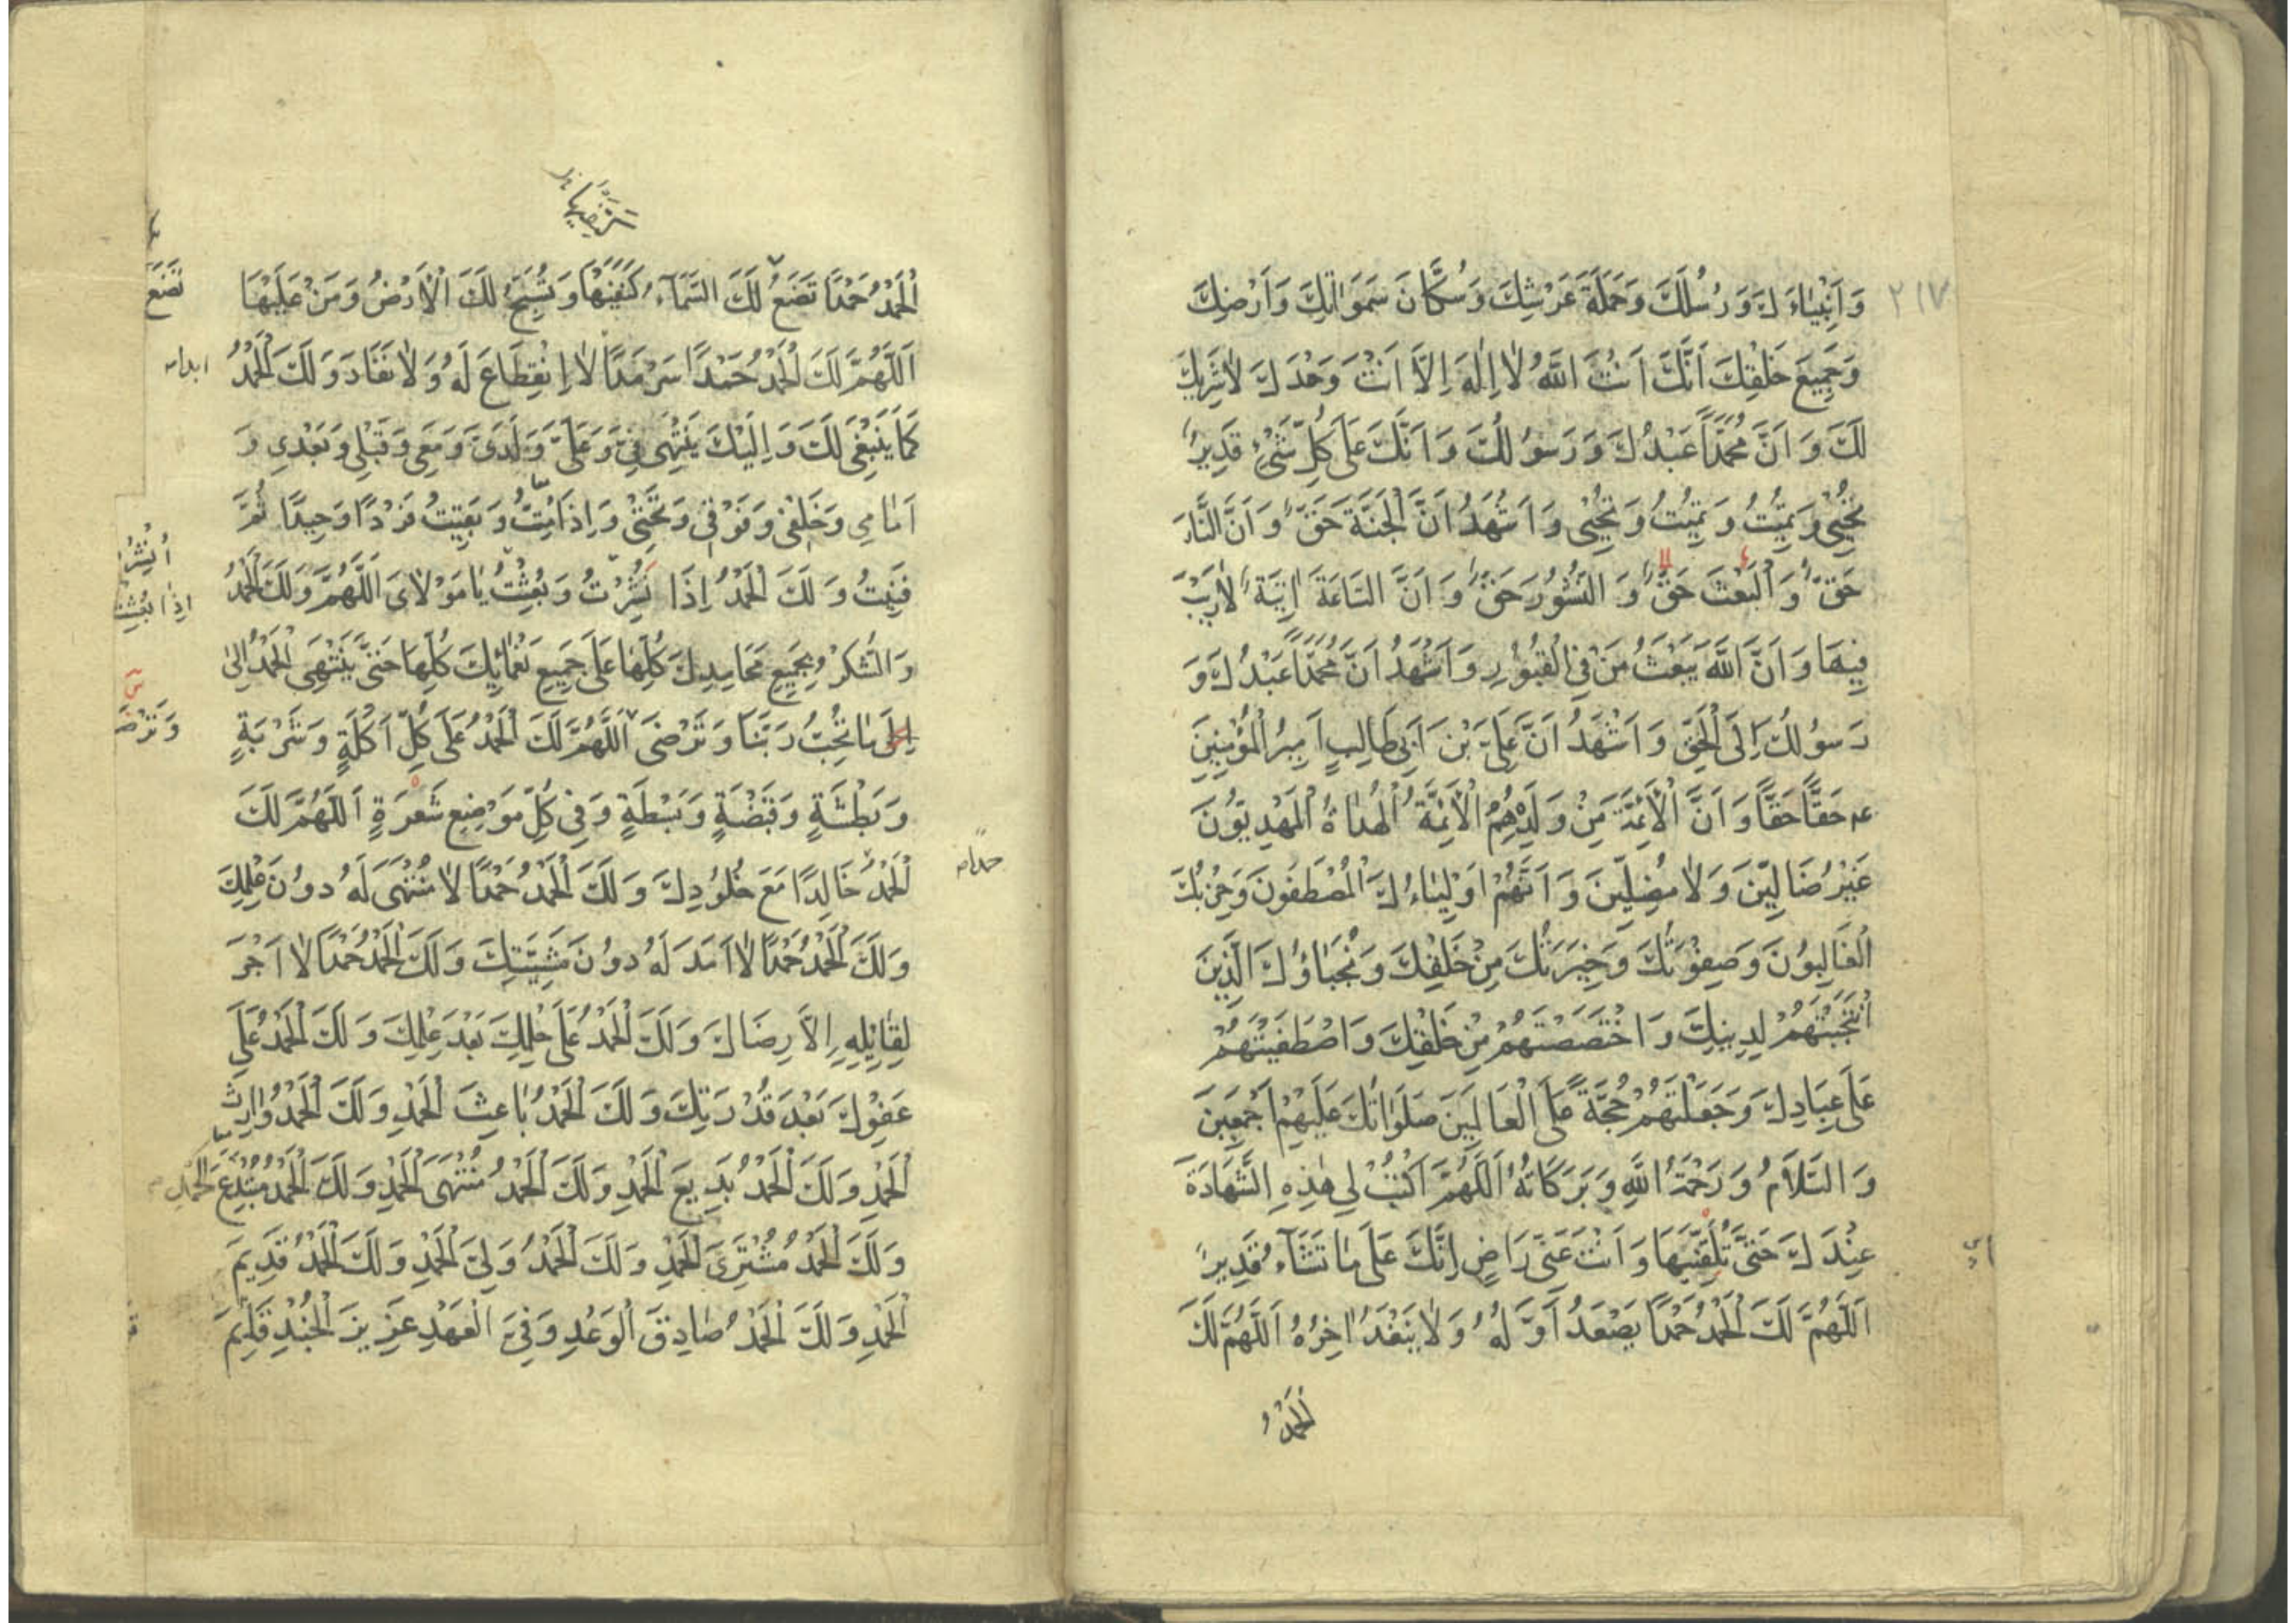 ٢١٧
وَاَنْبِيٰاءَكَ وَرُسُلَكَ وَحَمَلَةَ عَرْشِكَ وَسُكَّانَ سَمَوَاتِكَ وَاَرْضِكَ
وَجَمِيعَ خَلْقِكَ اَنَّكَ اَنْتَ اللّٰهُ لٰا اِلٰهَ اِلَّا اَنْتَ وَحْدَكَ لٰا شَرِيكَ
لَكَ وَاَنَّ مُحَمَّدًا عَبْدُكَ وَرَسُولُكَ وَاَنَّكَ عَلٰى كُلِّ شَيْءٍ قَدِيرٌ
تُحْيِي وَتُمِيتُ وَتُمِيتُ وَتُحْيِي وَاَشْهَدُ اَنَّ الْجَنَّةَ حَقٌّ وَاَنَّ النَّارَ
حَقٌّ وَالْبَعْثَ حَقٌّ وَالنُّشُورَ حَقٌّ وَاَنَّ السَّاعَةَ اٰتِيَةٌ لٰا رَيْبَ
فِيهَا وَاَنَّ اللّٰهَ يَبْعَثُ مَنْ فِي الْقُبُورِ وَاَشْهَدُ اَنَّ مُحَمَّدًا عَبْدُكَ وَ
رَسُولُكَ اِلَى الْحَقِّ وَاَشْهَدُ اَنَّ عَلِيَّ بْنَ اَبِي طَالِبٍ اَمِيرُ الْمُؤْمِنِينَ
عم حَقًّا حَقًّا وَاَنَّ الْاَئِمَّةَ مِنْ وَلَدِهِ هُمُ الْاَئِمَّةُ الْهُدٰاةُ الْمَهْدِيُّونَ
غَيْرُ ضَالِّينَ وَلٰا مُضِلِّينَ وَاَنَّهُمْ اَوْلِيٰاءُكَ الْمُصْطَفَوْنَ وَحِزْبُكَ
الْغَالِبُونَ وَصِفْوَتُكَ وَخِيَرَتُكَ مِنْ خَلْقِكَ وَنُجَبَاؤُكَ الَّذِينَ
انْتَجَبْتَهُمْ لِدِينِكَ وَاخْتَصَصْتَهُمْ مِنْ خَلْقِكَ وَاصْطَفَيْتَهُمْ
عَلٰى عِبَادِكَ وَجَعَلْتَهُمْ حُجَّةً عَلَى الْعَالَمِينَ صَلَوَاتُكَ عَلَيْهِمْ اَجْمَعِينَ
وَالسَّلَامُ وَرَحْمَةُ اللّٰهِ وَبَرَكَاتُهُ اَللّٰهُمَّ اكْتُبْ لِي هٰذِهِ الشَّهَادَةَ
عِنْدَكَ حَتّٰى تُلَقِّنَنِيهَا وَاَنْتَ عَنِّي رَاضٍ اِنَّكَ عَلٰى مٰا تَشَاءُ قَدِيرٌ
اَللّٰهُمَّ لَكَ الْحَمْدُ حَمْدًا يَصْعَدُ اَوَّلُهُ وَلٰا يَنْفَدُ اٰخِرُهُ اَللّٰهُمَّ لَكَ
الْحَمْدُ
الْحَمْدُ حَمْدًا تَضَعُ لَكَ السَّمَآءُ كَنَفَيْهَا وَتُسَبِّحُ لَكَ الْاَرْضُ وَمَنْ عَلَيْهَا
تَضَعُ
اَللّٰهُمَّ لَكَ الْحَمْدُ حَمْدًا سَرْمَدًا لٰا اِنْقِطَاعَ لَهُ وَلٰا نَفَادَ وَلَكَ الْحَمْدُ
ابدا
كَمَا يَنْبَغِي لَكَ وَاِلَيْكَ يَنْتَهِي فِيَّ وَعَلَيَّ وَلَدَيَّ وَمَعِي وَقَبْلِي وَبَعْدِي وَ
اَمٰامِي وَخَلْفِي وَفَوْقِي وَتَحْتِي وَاِذَا مِتُّ وَبَقِيتُ فَرْدًا وَحِيدًا ثُمَّ
فَنِيتُ وَلَكَ الْحَمْدُ اِذَا نُشِرْتُ وَبُعِثْتُ يٰا مَوْلٰايَ اَللّٰهُمَّ وَلَكَ الْحَمْدُ
وَالشُّكْرُ بِجَمِيعِ مَحَامِدِكَ كُلِّهَا عَلٰى جَمِيعِ نَعْمَائِكَ كُلِّهَا حَتّٰى يَنْتَهِيَ الْحَمْدُ اِلٰى
مٰا تُحِبُّ رَبَّنَا وَتَرْضٰى اَللّٰهُمَّ لَكَ الْحَمْدُ عَلٰى كُلِّ اَكْلَةٍ وَشَرْبَةٍ
وَبَطْشَةٍ وَقَبْضَةٍ وَبَسْطَةٍ وَفِي كُلِّ مَوْضِعِ شَعْرَةٍ اَللّٰهُمَّ لَكَ
الْحَمْدُ خَالِدًا مَعَ خُلُودِكَ وَلَكَ الْحَمْدُ حَمْدًا لٰا مُنْتَهٰى لَهُ دُونَ عِلْمِكَ
حمدا
وَلَكَ الْحَمْدُ حَمْدًا لٰا اَمَدَ لَهُ دُونَ مَشِيَّتِكَ وَلَكَ الْحَمْدُ حَمْدًا لٰا اَجْرَ
لِقَائِلِهِ اِلَّا رِضَاكَ وَلَكَ الْحَمْدُ عَلٰى حِلْمِكَ بَعْدَ عِلْمِكَ وَلَكَ الْحَمْدُ عَلٰى
عَفْوِكَ بَعْدَ قُدْرَتِكَ وَلَكَ الْحَمْدُ بٰاعِثَ الْحَمْدِ وَلَكَ الْحَمْدُ وٰارِثَ
الْحَمْدِ وَلَكَ الْحَمْدُ بَدِيعَ الْحَمْدِ وَلَكَ الْحَمْدُ مُنْتَهَى الْحَمْدِ وَلَكَ الْحَمْدُ مُبْتَدِعَ الْحَمْدِ
وَلَكَ الْحَمْدُ مُشْتَرِيَ الْحَمْدِ وَلَكَ الْحَمْدُ وَلِيَّ الْحَمْدِ وَلَكَ الْحَمْدُ قَدِيمَ
الْحَمْدِ وَلَكَ الْحَمْدُ صٰادِقَ الْوَعْدِ وَفِيَّ الْعَهْدِ عَزِيزَ الْجُنْدِ قَدِيمَ